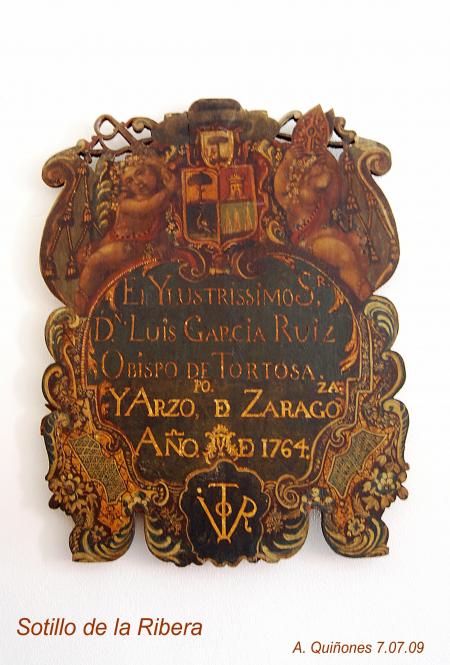 El Ylustrissimo Sr.
D.n Luis Garcia Ruiz
Obispo de Tortosa.
Y Arzo,po. D Zaragoza
Año, D 1764.
VITOR
Sotillo de la Ribera
A. Quiñones 7.07.09